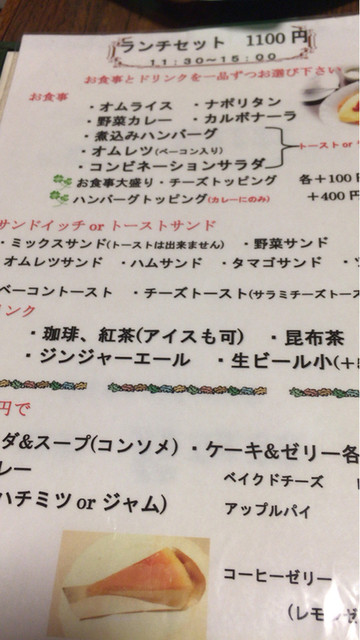 ランチセット 1100円
11:30~15:00
お食事とドリンクを一品ずつお選び下さい
お食事
・オムライス ・ナポリタン
・野菜カレー ・カルボナーラ
・煮込みハンバーグ
・オムレツ(ベーコン入り) トースト or
・コンビネーションサラダ
お食事大盛り・チーズトッピング 各+100
ハンバーグトッピング(カレーにのみ) +400円
サンドイッチ or トーストサンド
・ミックスサンド(トーストは出来ません) ・野菜サンド
オムレツサンド ・ハムサンド ・タマゴサンド ・
ベーコントースト ・チーズトースト(サラミチーズトー
リンク
・珈琲、紅茶(アイスも可) ・昆布茶
・ジンジャーエール ・生ビール小(+
円で
ダ&スープ(コンソメ) ・ケーキ&ゼリー各
レー ベイクドチーズ
ハチミツ or ジャム) アップルパイ
コーヒーゼリー
(レモン